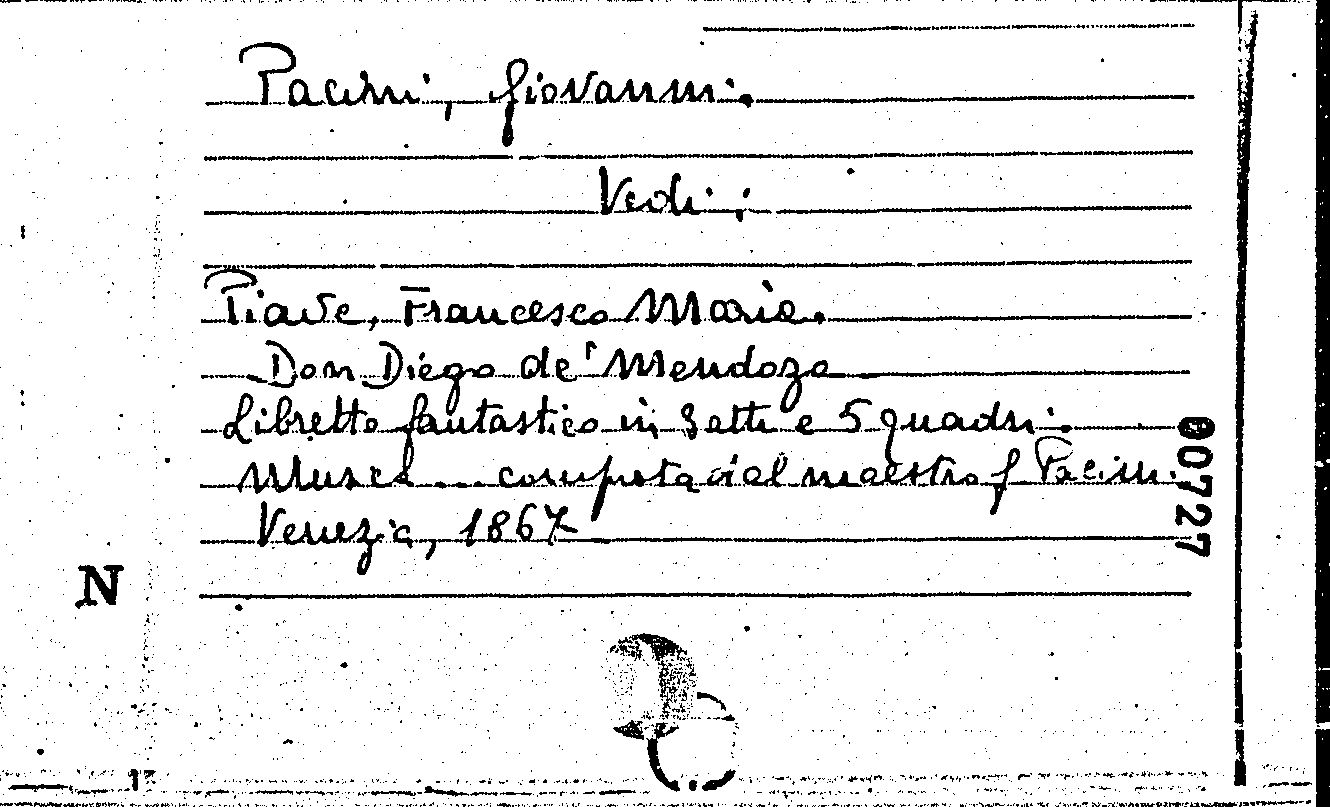 Pacini, Giovanni.
Vedi:
Piave, Francesco Maria.
Don Diego de' Mendoza
Libretto fantastico in 3 atti e 5 quadri.
Musica ... composta dal maestro G Pacini.
Venezia, 1867
00727
N